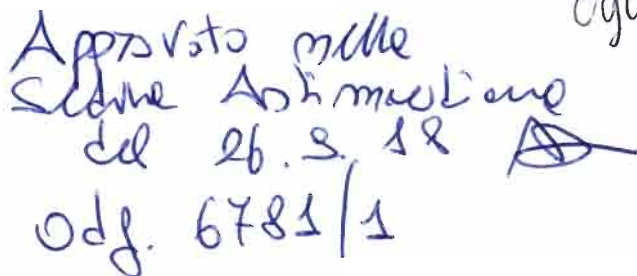 Approvato nella
Seduta Antimeridiana
del 26.9.18
Odg. 6781/1